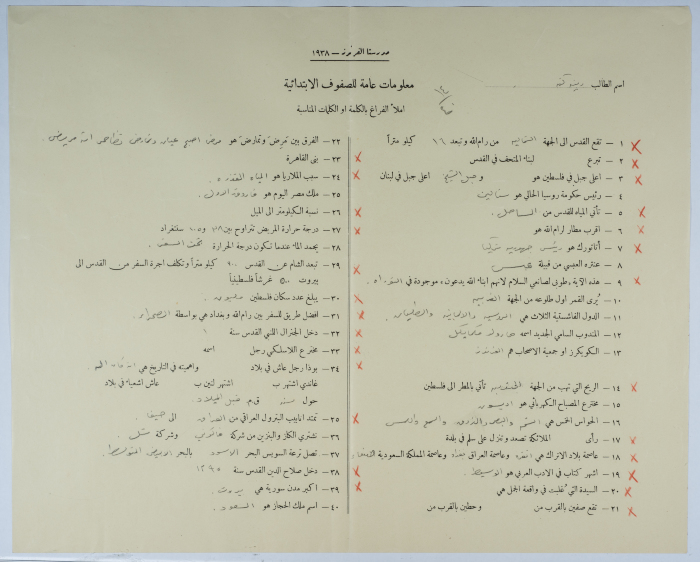 مدرستا الفرندز — ١٩٣٨
معلومات عامة للصفوف الابتدائية
اسم الطالب
املأ الفراغ بالكلمة او الكلمات المناسبة
١ — تقع القدس الى الجهة الشمالية من رام الله وتبعد ١٦ كيلو متراً
٢ — تبرع لبناء المتحف في القدس
٣ — اعلى جبل في فلسطين هو وجبل الشيخ اعلى جبل في لبنان
٤ — رئيس حكومة روسيا الحالي هو ستالين
٥ — تأتي المياه للقدس من الساحل
٦ — اقرب مطار لرام الله هو
٧ — أتاتورك هو رئيس جمهورية تركيا
٨ — عنتره العبسي من قبيلة عبس
٩ — هذه الآية، طوبى لصانعي السلام لانهم ابناء الله يدعون، موجودة في التوراه
١٠ — يُرى القمر اول طلوعه من الجهة الغربية
١١ — الدول الفاشستية الثلاث هي
١٢ — المندوب السامي الجديد اسمه هارولد مكمايكل
١٣ — الكويكرز او جمعية الاصحاب هم الفرندز
١٤ — الريح التي تهب من الجهة تأتي بالمطر الى فلسطين
١٥ — مخترع المصباح الكهربائي هو اديسون
١٦ — الحواس الخمس هي الشم والبصر والذوق والسمع واللمس
١٧ — رأى الملائكة تصعد وتنزل على سلم في بلدة
١٨ — عاصمة بلاد الاتراك هي انقره وعاصمة العراق بغداد وعاصمة المملكة السعودية
١٩ — اشهر كتاب في الادب العربي هو
٢٠ — السيدة التي غلبت في واقعة الجمل هي
٢١ — تقع صفين بالقرب من وحطين بالقرب من
٢٢ — الفرق بين تمرض وتمارض هو مرض اصبح عيان وتمارض
٢٣ — بنى القاهرة
٢٤ — سبب الملاريا هو المياه القذره
٢٥ — ملك مصر اليوم هو فاروق الاول
٢٦ — نسبة الكيلومتر الى الميل
٢٧ — درجة حرارة المريض تتراوح بين و سنتغراد
٢٨ — يجمد الماء عندما تكون درجة الحرارة تحت الصفر
٢٩ — تبعد الشام عن القدس ٩٠٠ كيلو متراً وتكلف اجرة السفر من القدس الى
بيروت ٥٠٠ غرشاً فلسطينياً
٣٠ — يبلغ عدد سكان فلسطين مليون
٣١ — افضل طريق للسفر بين رام الله وبغداد هي بواسطة الصحراء
٣٢ — دخل الجنرال اللنبي القدس سنة ١
٣٣ — مخترع اللاسلكي رجل اسمه
٣٤ — بوذا رجل عاش في بلاد واهميته في التاريخ هي انه كان اله
غاندي اشتهر ب اشتهر لنين ب عاش اشعياء في بلاد
حول سنة ق.م. قبل الميلاد
٣٥ — تمتد انابيب البترول العراقي من العراق الى حيفا
٣٦ — نشتري الكاز والبنزين من شركة وشركة شل
٣٧ — تصل ترعة السويس البحر الاسود بالبحر الابيض المتوسط
٣٨ — دخل صلاح الدين القدس سنة
٣٩ — اكبر مدن سورية هي بيروت
٤٠ — اسم ملك الحجاز هو السعود